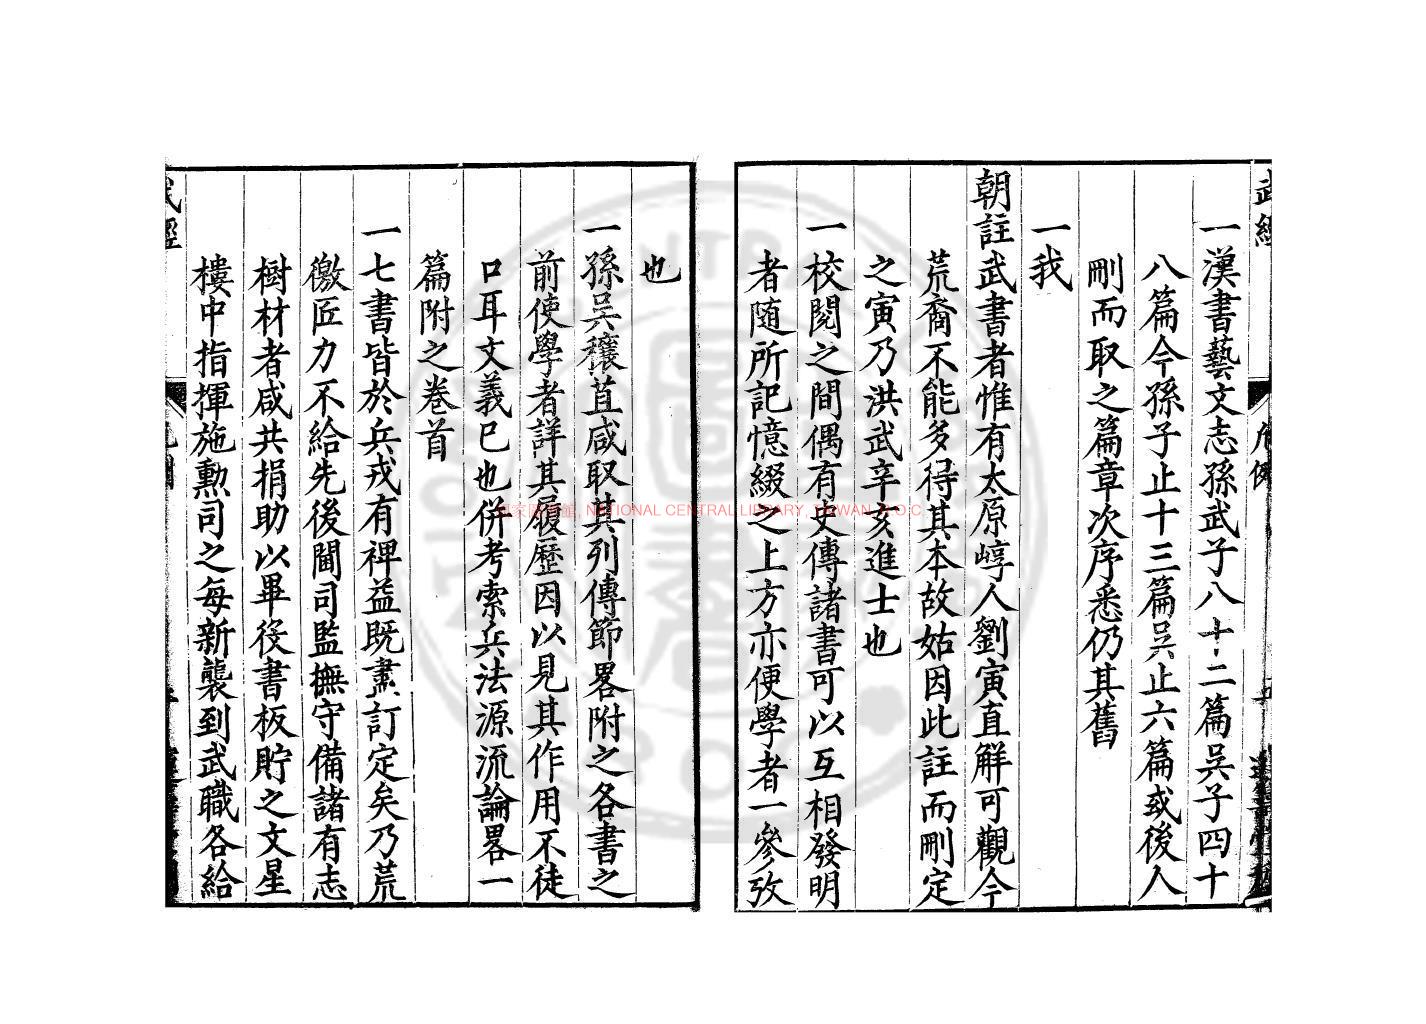 一漢書藝文志孫武子八十二篇吳子四十
八篇今孫子止十三篇吳止六篇或後人
刪而取之篇章次序悉仍其舊
一我
朝註武書者惟有太原崞人劉寅直解可觀今
荒裔不能多得其本故姑因此註而刪定
之寅乃洪武辛亥進士也
一校閱之間偶有史傳諸書可以互相發明
者随所記憶綴之上方亦便學者一參攷
也
一孫吳穰苴咸取其列傳節畧附之各書之
前使學者詳其履歷因以見其作用不徒
口耳文義已也併考索兵法源流論畧一
篇附之卷首
一七書皆於兵戎有裨益既 訂定矣乃荒
徼匠力不給先後閫司監撫守備諸有志
樹材者咸共捐助以畢役書板貯之文星
樓中指揮施勲司之每新襲到武職各給
武經
國家圖書館, NATIONAL CENTRAL LIBRARY, TAIWAN, R.O.C